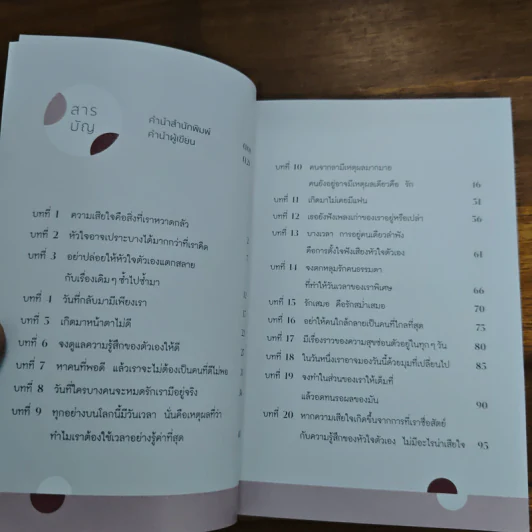 สาร
บัญ
คำนำสำนักพิมพ์
คำนำผู้เขียน
บทที่ 1 ความเสียใจคือสิ่งที่เราหวาดกลัว
บทที่ 2 หัวใจอาจเปราะบางได้มากกว่าที่เราคิด
บทที่ 3 อย่าปล่อยให้หัวใจตัวเองแตกสลาย
กับเรื่องเดิม ๆ ซ้ำไปซ้ำมา
บทที่ 4 วันที่กลับมามีเพียงเรา
บทที่ 5 เกิดมาหน้าตาไม่ดี
บทที่ 6 จงดูแลความรู้สึกของตัวเองให้ดี
บทที่ 7 หาคนที่พอดี แล้วเราจะไม่ต้องเป็นคนที่ดีไม่พอ
บทที่ 8 วันที่ใครบางคนจะหมดรักเรามีอยู่จริง
บทที่ 9 ทุกอย่างบนโลกนี้มีวันเวลา นั่นคือเหตุผลที่ว่า
ทำไมเราต้องใช้เวลาอย่างรู้ค่าที่สุด
บทที่ 10 คนจากลามีเหตุผลมากมาย
คนยังอยู่อาจมีเหตุผลเดียวคือ รัก 46
บทที่ 11 เกิดมาไม่เคยมีแฟน 51
บทที่ 12 เธอยังฟังเพลงเก่าของเราอยู่หรือเปล่า 56
บทที่ 13 บางเวลา การอยู่คนเดียวลำพัง
คือการตั้งใจฟังเสียงหัวใจตัวเอง 61
บทที่ 14 จงตกหลุมรักคนธรรมดา
ที่ทำให้วันเวลาของเราพิเศษ 66
บทที่ 15 รักเสมอ คือรักสม่ำเสมอ 70
บทที่ 16 อย่าให้คนใกล้กลายเป็นคนที่ไกลที่สุด 75
บทที่ 17 มีเรื่องราวของความสุขซ่อนตัวอยู่ในทุก ๆ วัน 80
บทที่ 18 ในวันหนึ่งเราอาจมองวันนี้ด้วยมุมที่เปลี่ยนไป 85
บทที่ 19 จงทำในส่วนของเราให้เต็มที่
แล้วอดทนรอผลของมัน 90
บทที่ 20 หากความเสียใจเกิดขึ้นจากการที่เราซื่อสัตย์
กับความรู้สึกของหัวใจตัวเอง ไม่มีอะไรน่าเสียใจ 95